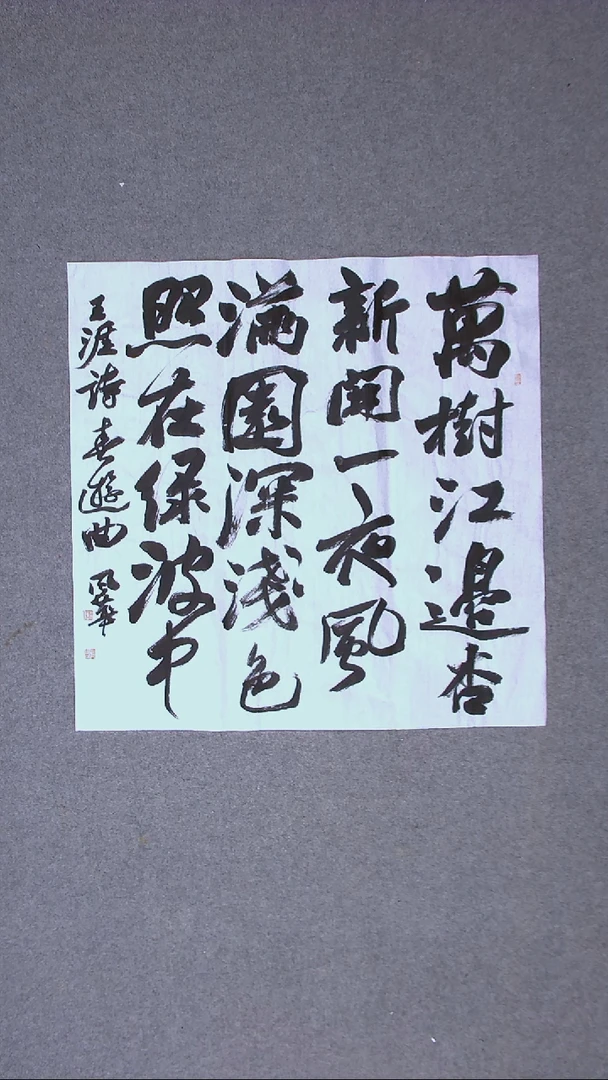 萬樹江邊杏
新開一夜風
滿園深淺色
照在绿波中
王涯詩春遊曲